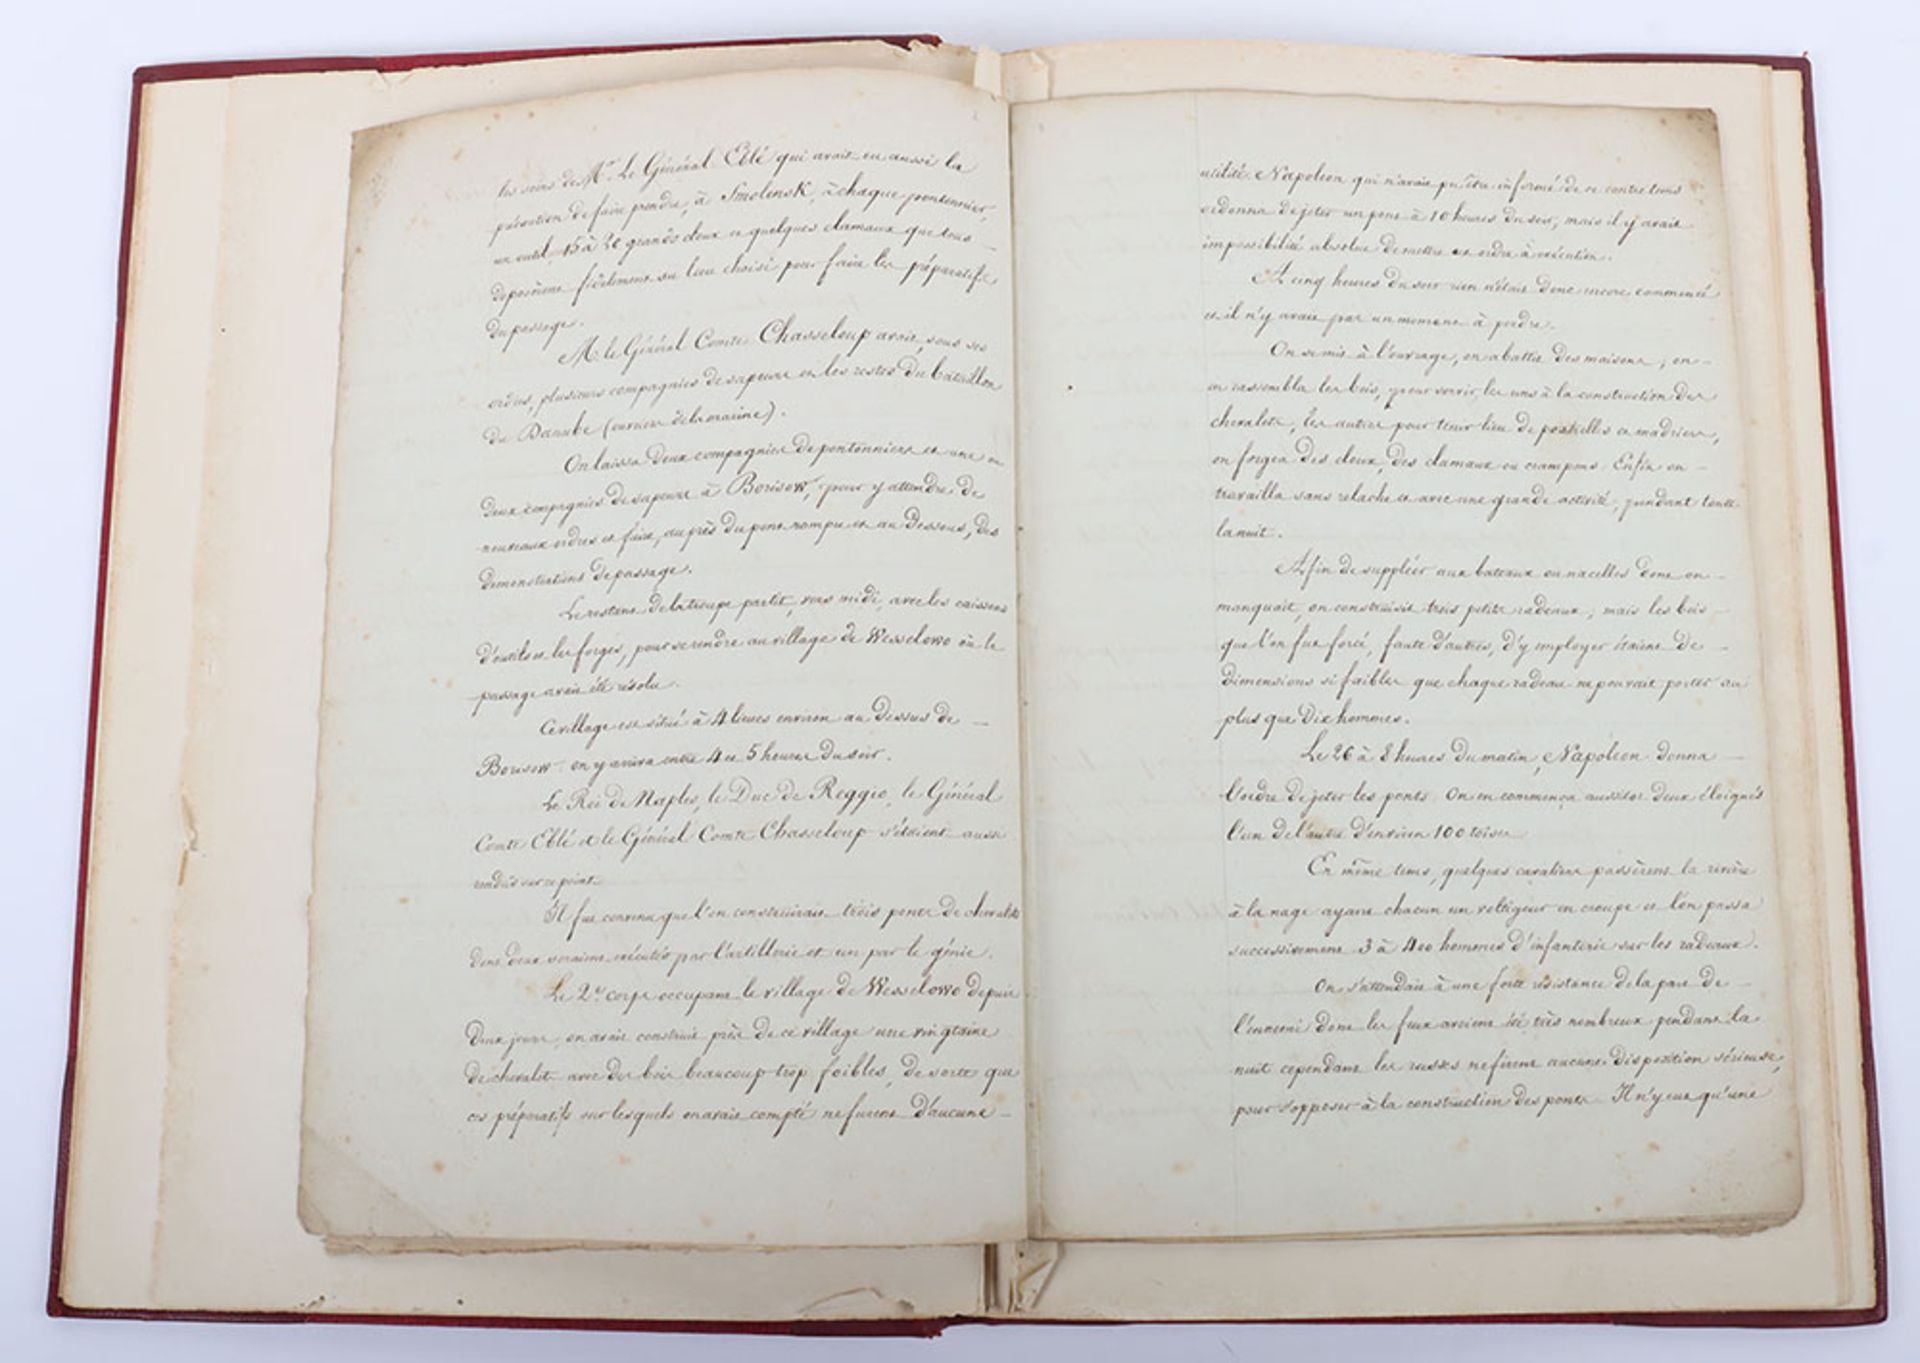 les soins de Mr. le Général Eblé qui avait eu aussi la
précaution de faire prendre, à Smolensk, à chaque pontonnier,
un outil, 15 à 20 grands cloux et quelques clamaux que tous
deposèrent fidèlement au lieu choisi pour faire les préparatifs
du passage.
M. le Général Comte Chasseloup avait, sous ses
ordres, plusieurs compagnies de sapeurs et les restes du bataillon
du Danube (ouvriers de la marine).
On laissa deux compagnies de pontonniers et une ou
deux compagnies de sapeurs à Borisow, pour y attendre de
nouveaux ordres et faire, auprès du pont rompu et au dessous, des
démonstrations de passage.
Le restant de la troupe partit, vers midi, avec les caissons
d'outils et les forges, pour se rendre au village de Wesselowo où le
passage avait été résolu.
Ce village est situé à 4 lieues environ au dessus de
Borisow. on y arriva entre 4 et 5 heures du soir.
Le Roi de Naples, le Duc de Reggio, le Général
Comte Eblé et le Général Comte Chasseloup s'étaient aussi
rendus sur ce point.
Il fut convenu que l'on construirait trois ponts de chevalets
dont deux seraient exécutés par l'artillerie et un par le génie.
Le 2e. corps occupant le village de Wesselowo depuis
deux jours, on avait construit près de ce village une vingtaine
de chevalets avec des bois beaucoup trop foibles, de sorte que
ces préparatifs sur lesquels on avait compté ne furent d'aucune
utilité. Napoléon qui n'avait pu être informé de ce contre tems
ordonna de jeter un pont à 10 heures du soir, mais il y avait
impossibilité absolue de mettre cet ordre à exécution.
A cinq heures du soir rien n'était donc encore commencé
et il n'y avait pas un moment à perdre.
On se mit à l'ouvrage, on abattit des maisons, on
en rassembla les bois, pour servir, les uns à la construction des
chevalets, les autres pour tenir lieu de poutrelles et madriers,
on forgea des cloux, des clamaux ou crampons. Enfin on
travailla sans relache et avec une grande activité, pendant toute
la nuit.
Afin de suppléer aux bateaux ou nacelles dont on
manquait, on construisit trois petits radeaux; mais les bois
que l'on fut forcé, faute d'autres, d'y employer étaient de
dimensions si faibles que chaque radeau ne pouvait porter au
plus que dix hommes.
Le 26 à 8 heures du matin, Napoléon donna
l'ordre de jeter les ponts. On en commença aussitot deux éloignés
l'un de l'autre d'environ 100 toises
En même tems, quelques cavaliers passèrent la rivière
à la nage ayant chacun un voltigeur en croupe et l'on passa
successivement 3 à 400 hommes d'infanterie sur les radeaux.
On s'attendait à une forte résistance de la part de
l'ennemi dont les feux avaient été très nombreux pendant la
nuit cependant les russes ne firent aucune disposition sérieuse,
pour s'opposer à la construction des ponts. Il n'y eut qu'une